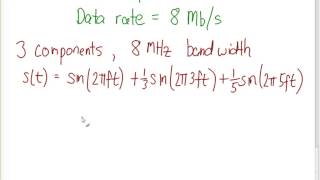 Data rate = 8 Mb/s
3 components, 8 MHz bandwidth
s(t) = sin(2πft) + ⅓sin(2π3ft) + ⅕sin(2π5ft)